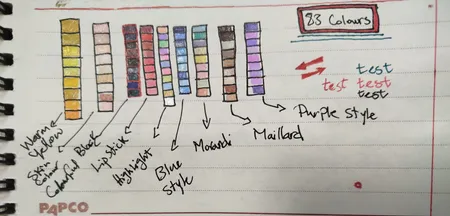 83 Colours
test
test test
test
Purple Style
Maillard
Morandi
Blue
Style
Highlight
Lipstick
Colourful Black
Skin
Colour
Warm
Yellow
PAPCO